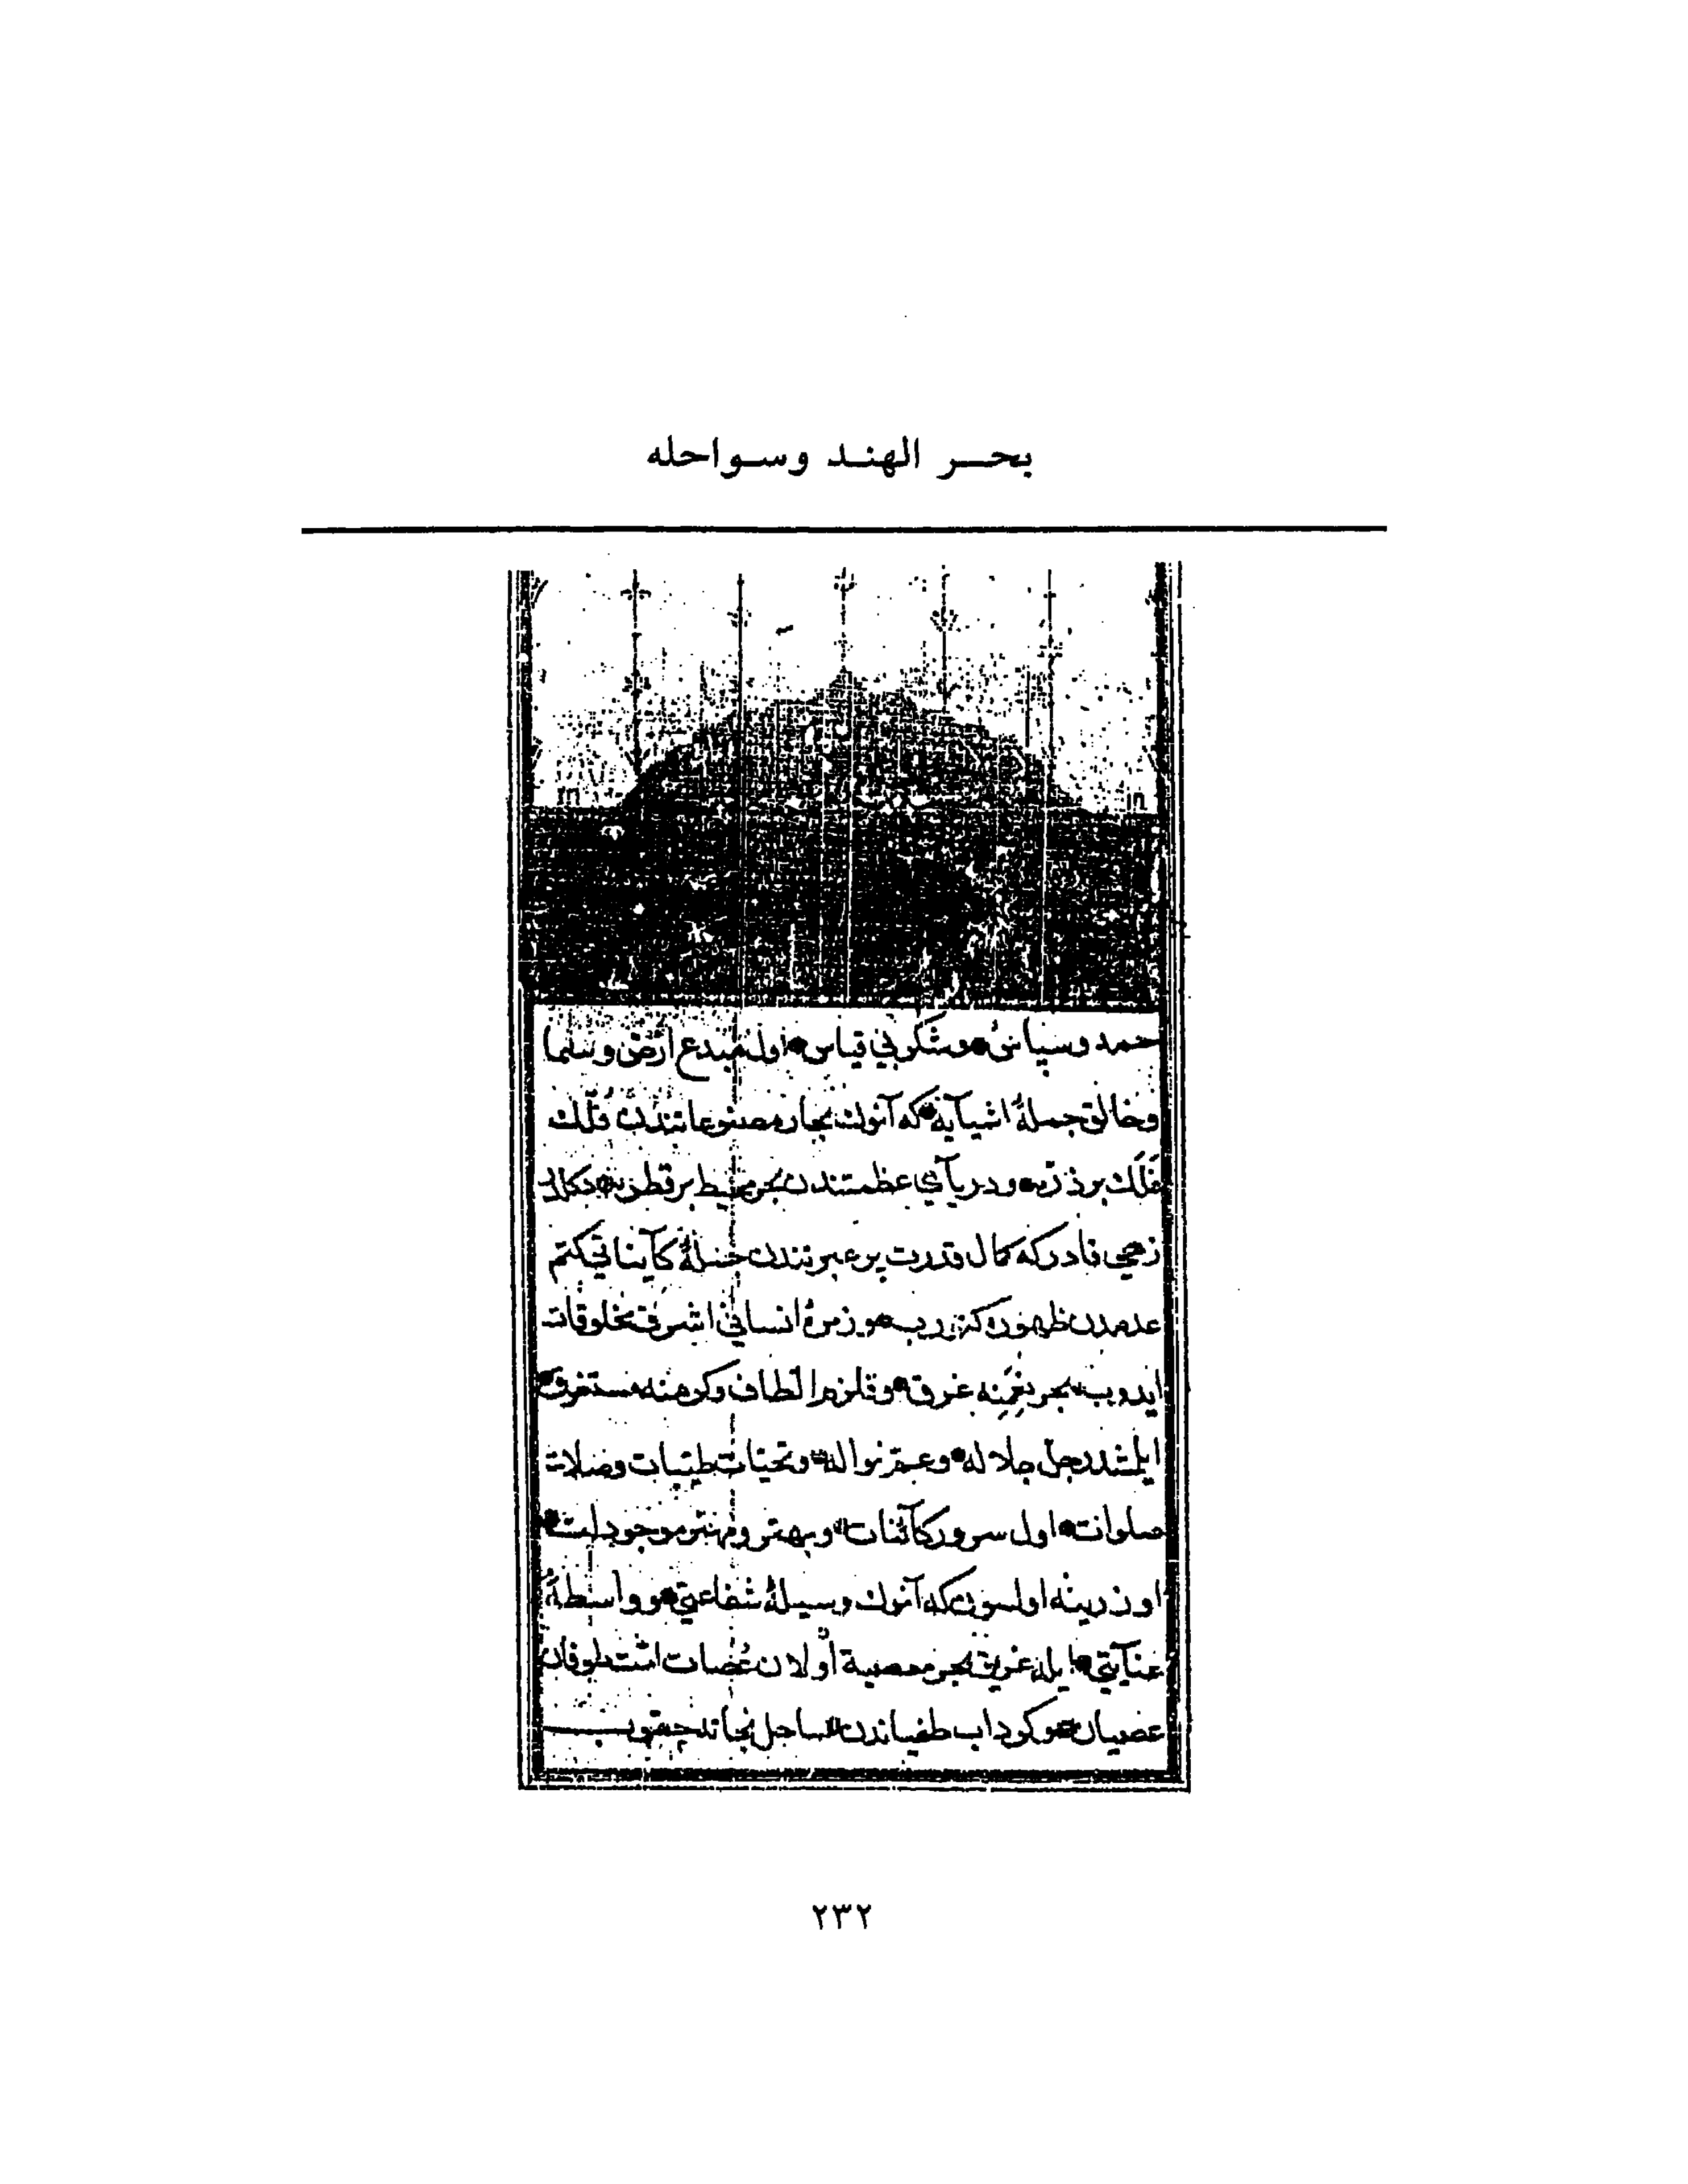 بحر الهند وسواحله
حمد وسپاس وشكر بي قياس اول مبدع ارض وسما
وخالق جملۀ اشيايه كه آنوك بحار مصنوعاتندن فلك
فلك بر ذره ودرياى عظمتندن بحر محيط بر قطره دكلدر
زهي قادر كه كمال قدرت بر عبرتندن جملۀ كآيناتي كتم
عدمدن ظهوره كتورب وزمرۀ انساني اشرف مخلوقات
ايدوب بحر نعمنه غرق وقلزم الطاف وكرمنه مستغرق
ايلمشدر جل جلاله وعم نواله وتحيات طيبات وصلات
صلوات اول سرور كآئنات وبهتر ومهتر موجودات
اوزرينه اولسون كه آنوك وسيلۀ شفاعتي وواسطۀ
عنآيتي ايله غريق بحر معصية اولان عصات امت طوفان
عصيان وكرداب طغياندن ساحل نجاته چقوب
٢٣٢